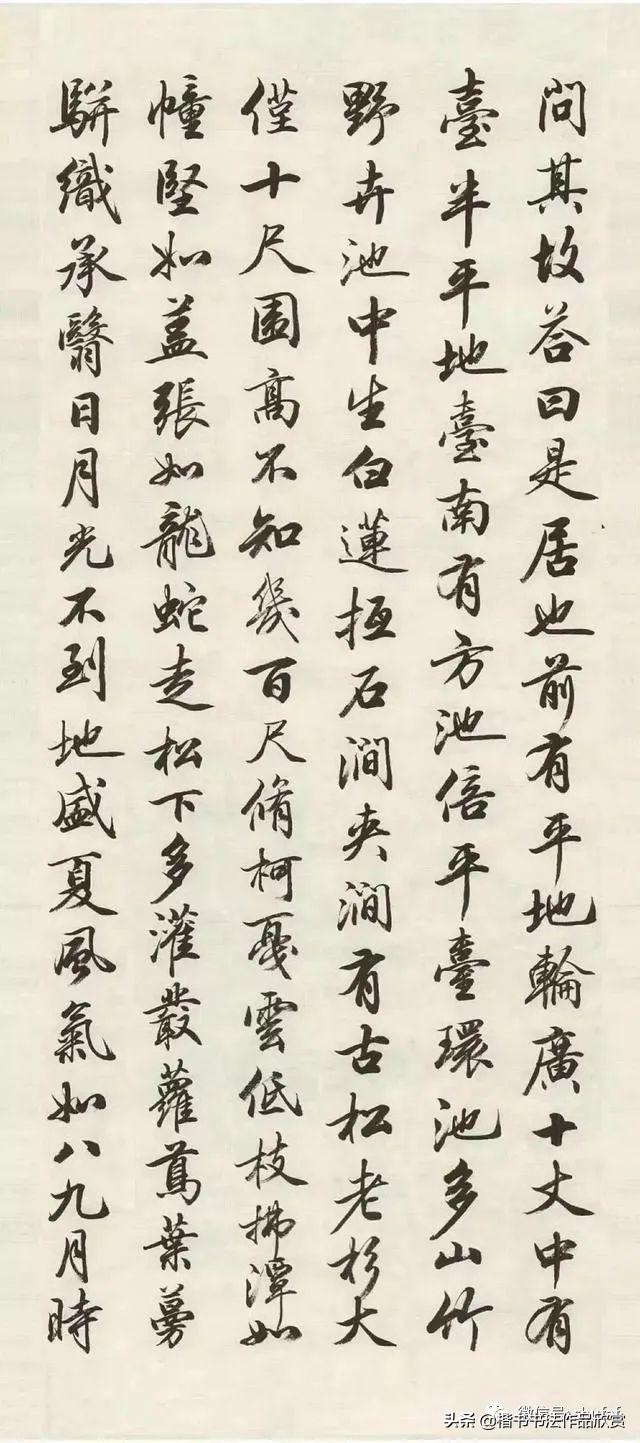 問其故荅曰是居也前有平地輪廣十丈中有
臺半平地臺南有方池倍平臺環池多山竹
野卉池中生白蓮抵石澗夾澗有古松老杉大
僅十尺圍高不知幾百尺脩柯戛雲低枝拂潭如
幢竪如盖張如龍蛇走松下多灌叢蘿蔦葉蔓
駢織承翳日月光不到地盛夏風氣如八九月時
微信号
头条 @楷书书法作品欣赏